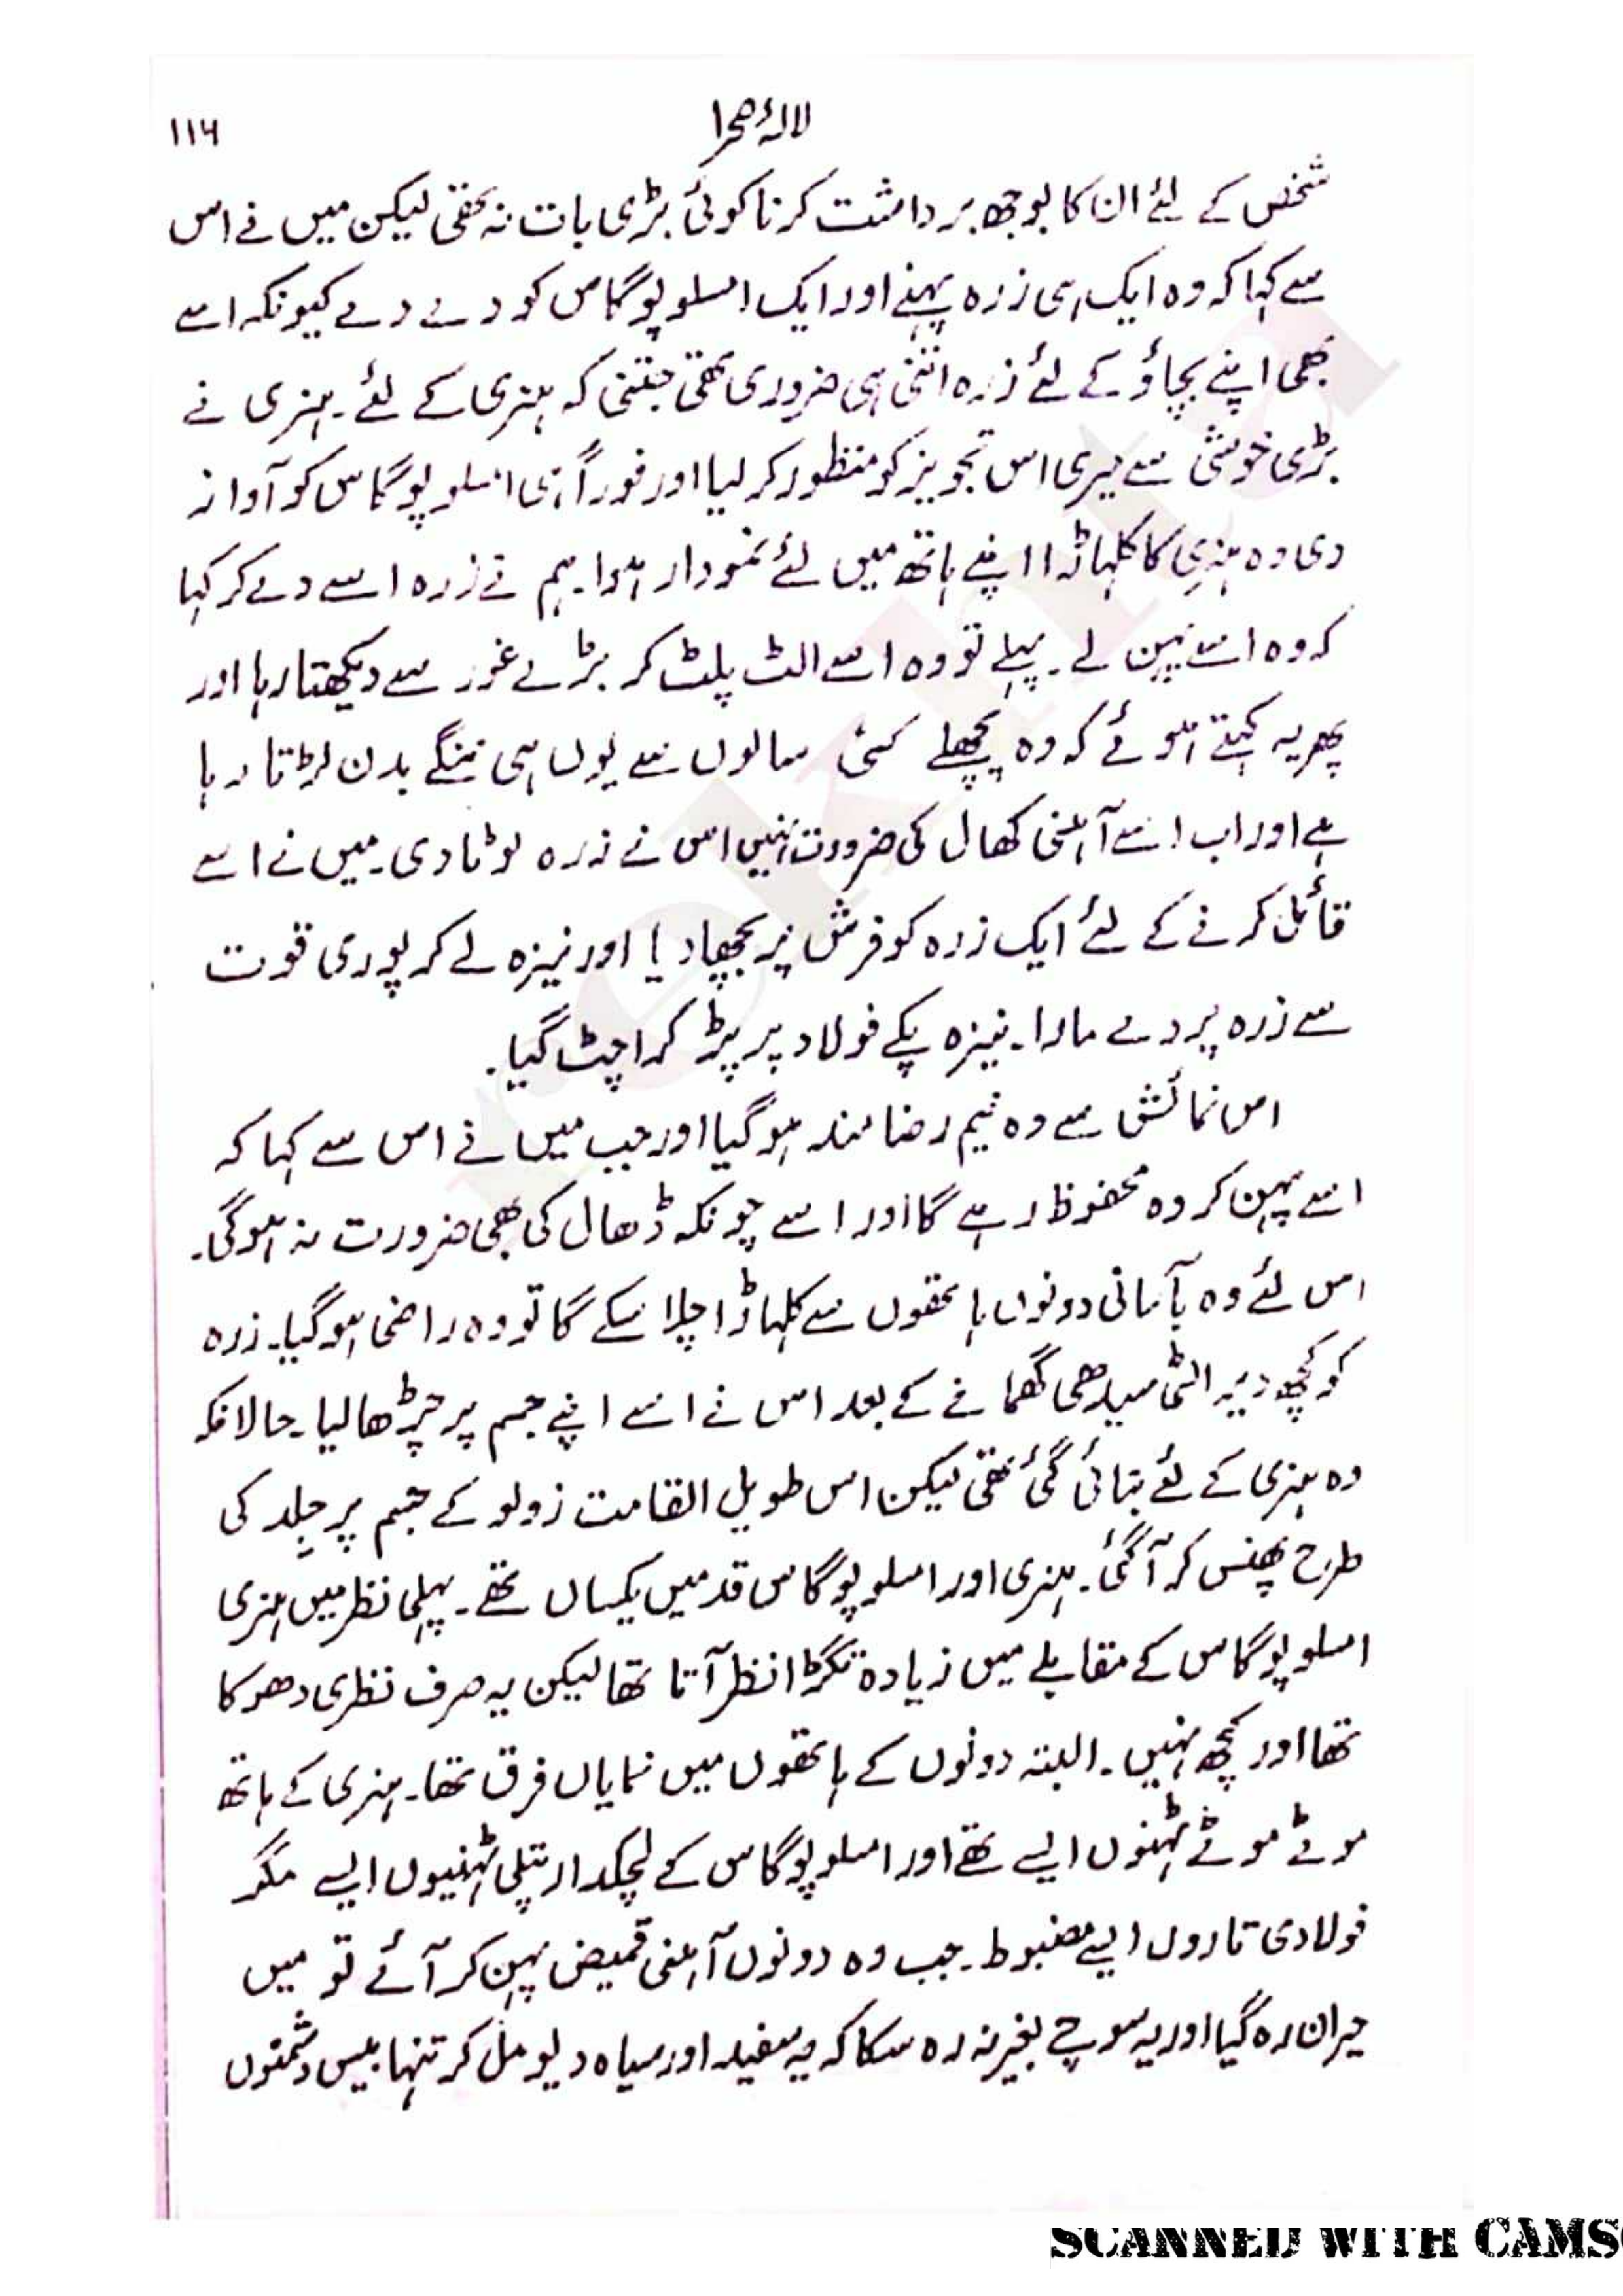 لالۂ صحرا
۱۱۶
شخص کے لئے ان کا بوجھ برداشت کرنا کوئی بڑی بات نہ تھی لیکن میں نے اس
سے کہا کہ وہ ایک ہی زرہ پہنے اور ایک امسلوپوگاس کو دے دے کیونکہ اسے
بھی اپنے بچاؤ کے لئے زرہ اتنی ہی ضروری تھی جتنی کہ ہنری کے لئے۔ ہنری نے
بڑی خوشی سے میری اس تجویز کو منظور کر لیا اور فوراً ہی امسلوپوگاس کو آواز
دی وہ ہنری کا کلہاڑا اپنے ہاتھ میں لئے نمودار ہوا۔ ہم نے زرہ اسے دے کر کہا
کہ وہ اسے پہن لے۔ پہلے تو وہ اسے الٹ پلٹ کر بڑے غور سے دیکھتا رہا اور
پھر یہ کہتے ہوئے کہ وہ پچھلے کئی سالوں سے یوں ہی ننگے بدن لڑتا رہا
ہے اور اب اسے آہنی کھال کی ضرورت نہیں اس نے زرہ لوٹا دی۔ میں نے اسے
قائل کرنے کے لئے ایک زرہ کو فرش پر بچھا دیا اور نیزہ لے کر پوری قوت
سے زرہ پر دے مارا۔ نیزہ پکے فولاد پر پڑ کر اچٹ گیا۔
اس نمائش سے وہ نیم رضا مند ہو گیا اور جب میں نے اس سے کہا کہ
اسے پہن کر وہ محفوظ رہے گا اور اسے چونکہ ڈھال کی بھی ضرورت نہ ہو گی۔
اس لئے وہ بآسانی دونوں ہاتھوں سے کلہاڑا چلا سکے گا تو وہ راضی ہو گیا۔ زرہ
کو کچھ دیر الٹی سیدھی گھمانے کے بعد اس نے اسے اپنے جسم پر چڑھا لیا۔ حالانکہ
وہ ہنری کے لئے بنائی گئی تھی لیکن اس طویل القامت زولو کے جسم پر جِلد کی
طرح پھنس کر آ گئی۔ ہنری اور امسلوپوگاس قد میں یکساں تھے۔ پہلی نظر میں ہنری
امسلوپوگاس کے مقابلے میں زیادہ تگڑا نظر آتا تھا لیکن یہ صرف نظری دھوکا
تھا اور کچھ نہیں۔ البتہ دونوں کے ہاتھوں میں نمایاں فرق تھا۔ ہنری کے ہاتھ
موٹے موٹے ٹہنوں ایسے تھے اور امسلوپوگاس کے لچکدار پتلی ٹہنیوں ایسے مگر
فولادی تاروں ایسے مضبوط۔ جب وہ دونوں آہنی قمیض پہن کر آئے تو میں
حیران رہ گیا اور یہ سوچے بغیر نہ رہ سکا کہ یہ سفید اور سیاہ دیو مل کر تنہا بیس دشمنوں
rekhta
SCANNED WITH CAMS